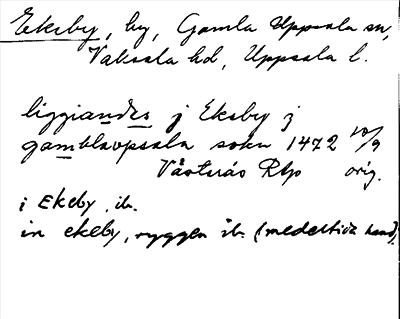 Ekeby, by, Gamla Uppsala sn,
Vaksala hd, Uppsala l.
liggiandes j Ekeby j
gamblaopsala sokn 1472 10/9
Västerås Rbp orig.
i Ekeby, ib.
in ekeby, ryggen ib. (medeltida hand).